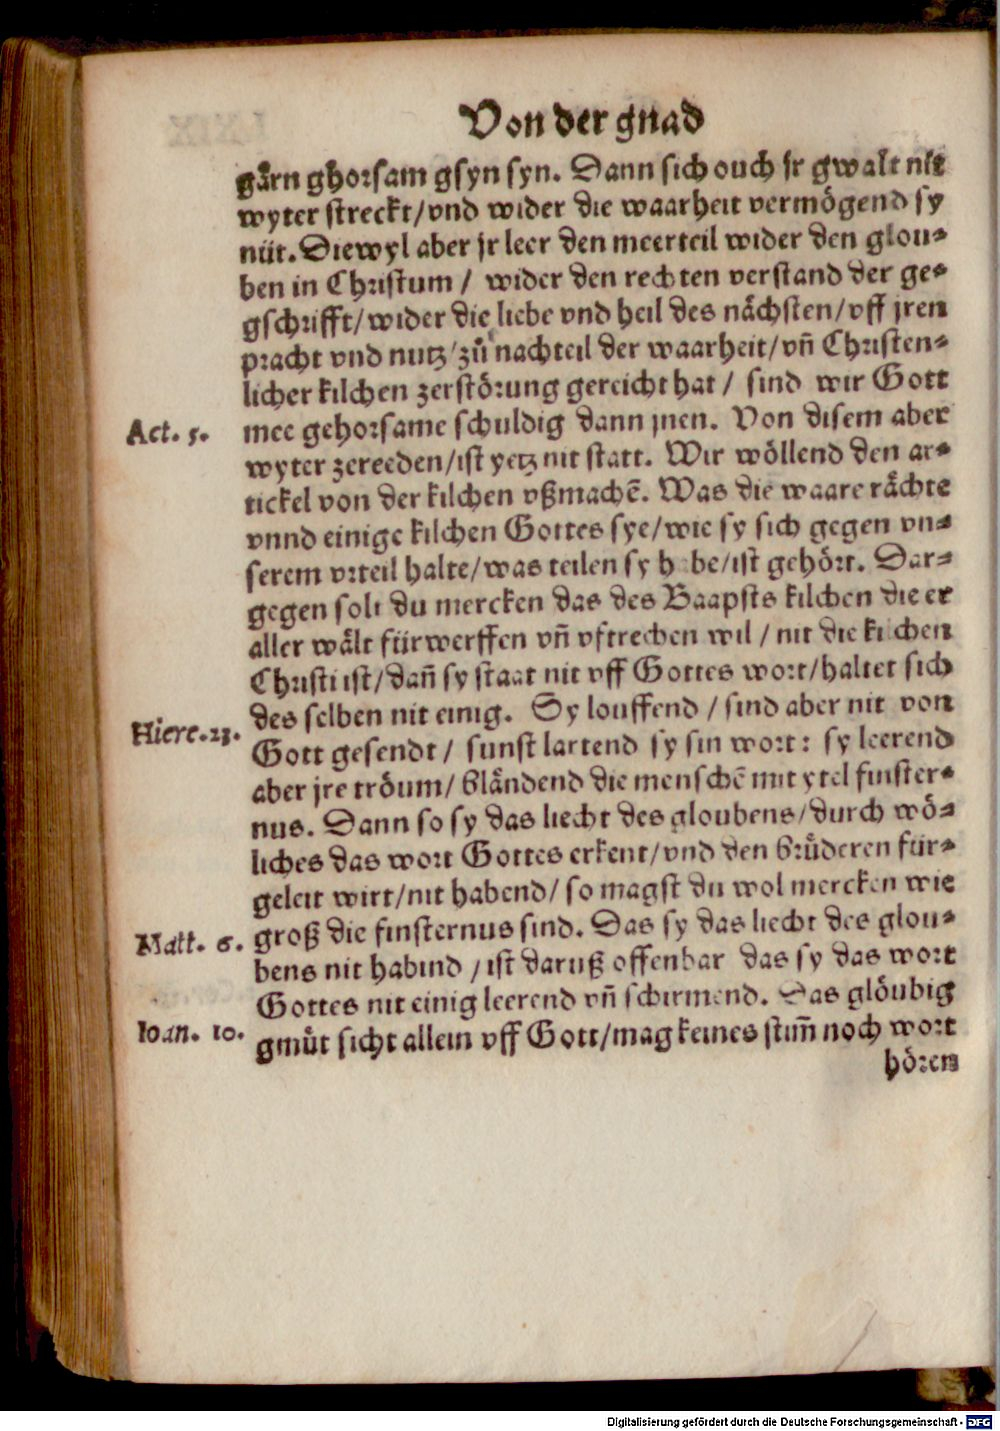 Von der gnad
gårn ghorsam gsyn syn. Dann sich ouch jr gwalt nit
wyter streckt/vnd wider die waarheit vermögend sy
nüt. Diewyl aber jr leer den meerteil wider den glou-
ben in Christum / wider den rechten verstand der ge-
gschrifft/wider die liebe vnd heil des nächsten/vff jren
pracht vnd nutz/zů nachteil der waarheit/vñ Christen-
licher kilchen zerstörung gereicht hat / sind wir Gott
Act. 5. mee gehorsame schuldig dann jnen. Von disem aber
wyter zereeden/ist yetz nit statt. Wir wöllend den ar-
tickel von der kilchen vßmachē. Was die waare råchte
vnnd einige kilchen Gottes sye/wie sy sich gegen vn-
serem vrteil halte/was teilen sy habe/ist gehört. Dar-
gegen solt du mercken das des Baapsts kilchen die er
aller wålt fürwerffen vñ vftrechen wil / nit die kilchen
Christi ist/dañ sy staat nit vff Gottes wort/haltet sich
des selben nit einig. Sy louffend / sind aber nit von
Hiere. 23. Gott gesendt / sunst lartend sy sin wort: sy leerend
aber jre tröum/ bländend die menschē mit ytel finster-
nus. Dann so sy das liecht des gloubens/durch wö-
liches das wort Gottes erkent/vnd den brůderen für-
geleit wirt/nit habend/ so magst du wol mercken wie
Matt. 6. groß die finsternus sind. Das sy das liecht des glou-
bens nit habind / ist daruß offenbar das sy das wort
Gottes nit einig leerend vñ schirmend. Das glöubig
Ioan. 10. gmůt sicht allein vff Gott/mag keines stim̃ noch wort
hören
Digitalisierung gefördert durch die Deutsche Forschungsgemeinschaft - DFG